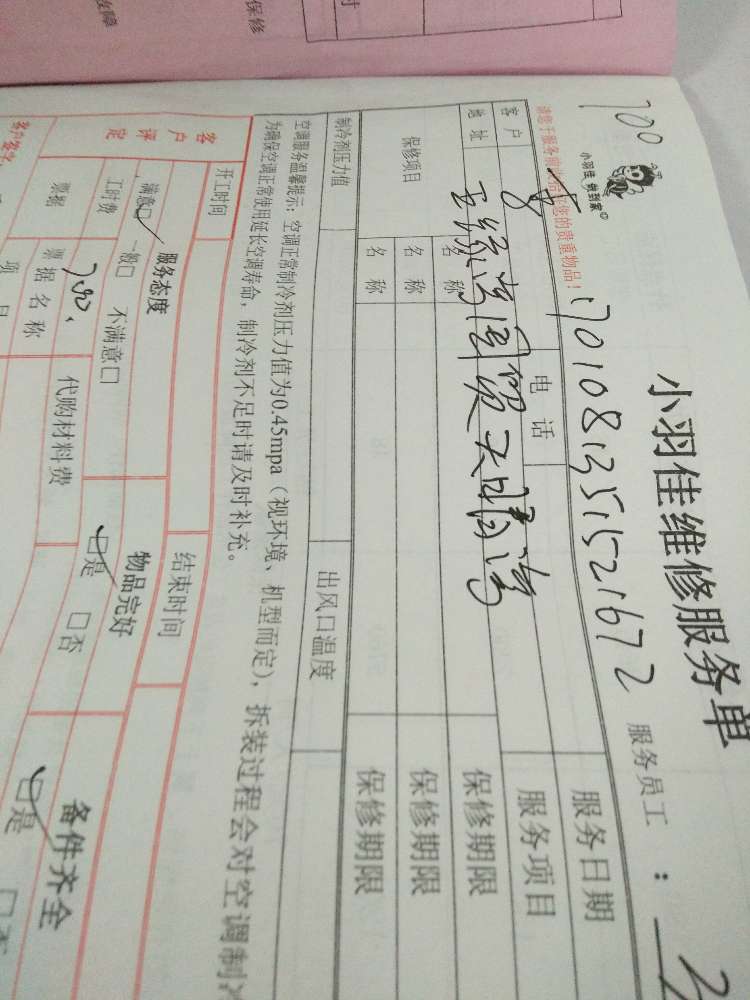 障
保修
时
700
小羽佳 做到家
小羽佳维修服务单
服务员工：
7010813515521672
您的贵重物品！
客户
电话
服务日期
地址
服务项目
保修项目
名称
保修期限
名称
保修期限
名称
保修期限
制冷剂压力值
出风口温度
空调服务温馨提示：空调正常制冷剂压力值为0.45mpa（视环境、机型而定），拆装过程会对空调制冷
为确保空调正常使用延长空调寿命，制冷剂不足时请及时补充。
开工时间
结束时间
客户评定
服务态度
物品完好
备件齐全
满意□ 一般□ 不满意□
□是 □否
□是 □否
工时费
代购材料费
票据
票据名称
客户签字
项目